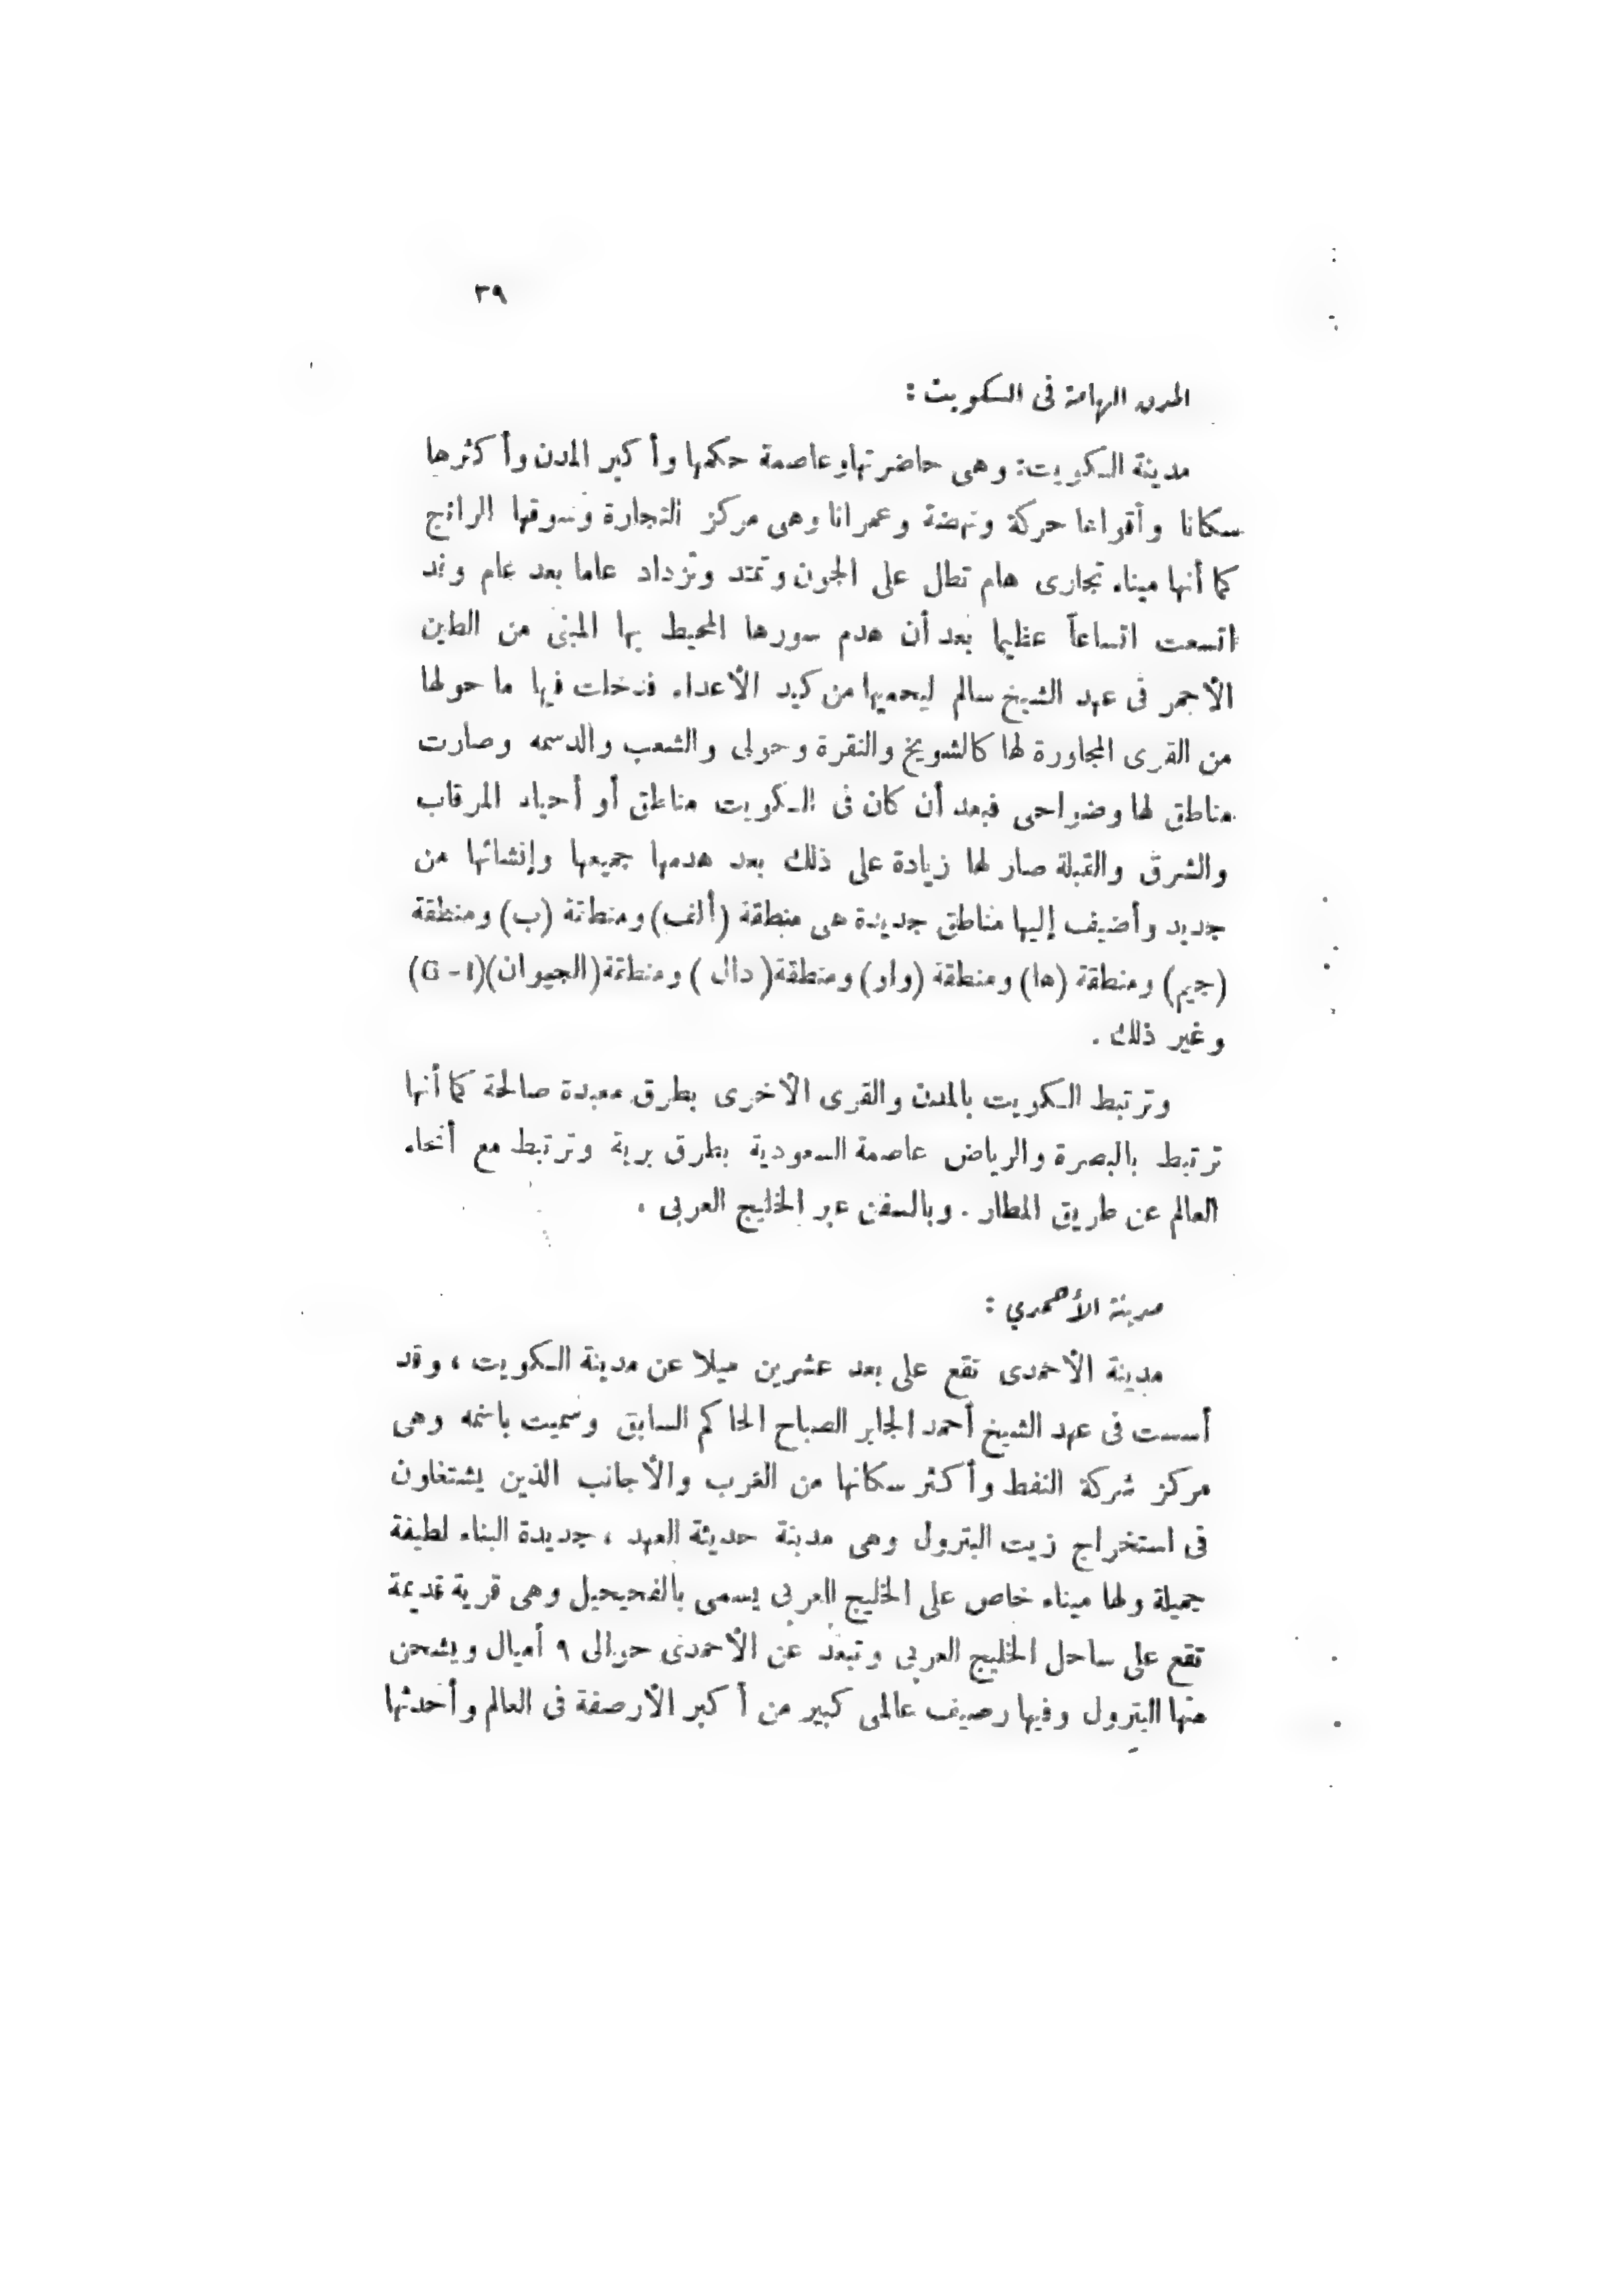 ٣٩
المدن الهامة فى الكويت :
مدينة الكويت: وهى حاضرتها وعاصمة حكمها وأكبر المدن وأكثرها
سكانا وأقواها حركة ونهضة وعمرانا وهى مركز التجارة وسوقها الرائج
كما أنها ميناء تجارى هام تطل على الجون وتمتد وتزداد عاما بعد عام وقد
اتسعت اتساعاً عظيما بعد أن هدم سورها المحيط بها المبنى من الطين
الأحمر فى عهد الشيخ سالم ليحميها من كيد الأعداء فدخلت فيها ما حولها
من القرى المجاورة لها كالشويخ والنقرة وحولى والشعب والدسمه وصارت
مناطق لها وضواحى فبعد أن كان فى الكويت مناطق أو أحياء المرقاب
والشرق والقبلة صار لها زيادة على ذلك بعد هدمها جميعها وإنشائها من
جديد وأضيف إليها مناطق جديدة هى منطقة (ألف) ومنطقة (ب) ومنطقة
(جيم) ومنطقة (ها) ومنطقة (واو) ومنطقة (دال) ومنطقة (الجيوان) (G - 1)
وغير ذلك .
وترتبط الكويت بالمدن والقرى الأخرى بطرق معبدة صالحة كما أنها
ترتبط بالبصرة والرياض عاصمة السعودية بطرق برية وترتبط مع أنحاء
العالم عن طريق المطار . وبالسفن عبر الخليج العربى .
مدينة الأحمدي :
مدينة الأحمدى تقع على بعد عشرين ميلا عن مدينة الكويت ، وقد
أسست فى عهد الشيخ أحمد الجابر الصباح الحاكم السابق وسميت باسمه وهى
مركز شركة النفط وأكثر سكانها من الغرب والأجانب الذين يشتغلون
فى استخراج زيت البترول وهى مدينة حديثة العهد ، جديدة البناء لطيفة
جميلة ولها ميناء خاص على الخليج العربى يسمى بالفحيحيل وهى قرية قديمة
تقع على ساحل الخليج العربى وتبعد عن الأحمدى حوالى ٩ أميال ويشحن
منها البترول وفيها رصيف عالمى كبير من أكبر الأرصفة فى العالم وأحدثها